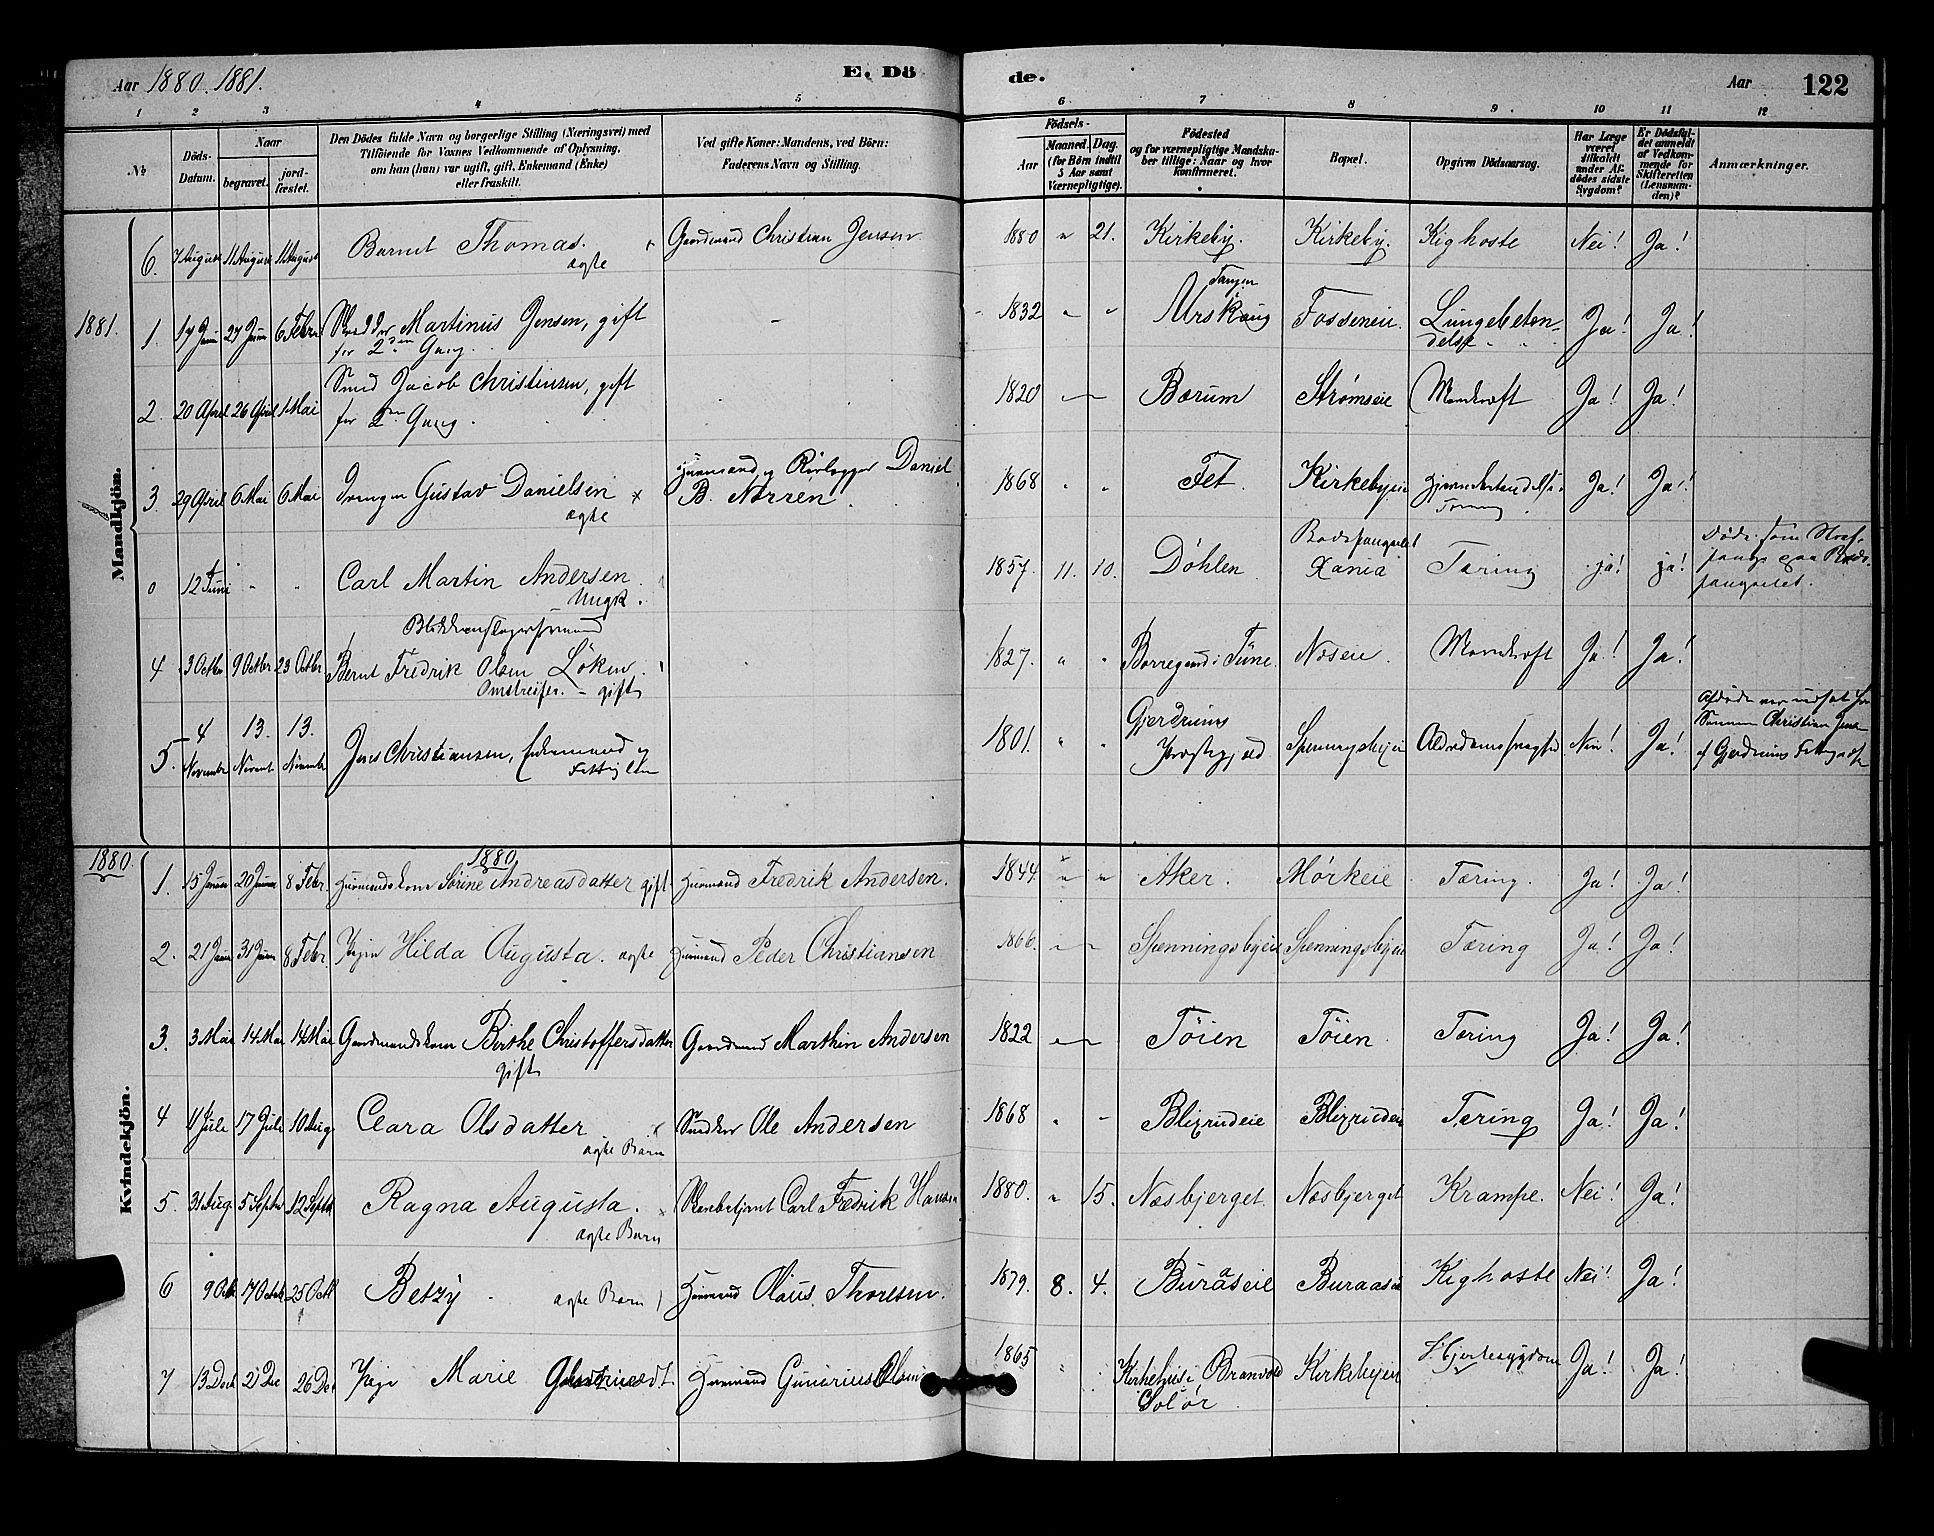 Aar 1880. 1881. E. Dö de. Aar 122
1 2 3 4 5 6 7 8 9 10 11 12
№
Döds-Datum.
Naar
begravet.
jord-fæstet.
Den Dödes fulde Navn og borgerlige Stilling (Næringsvei) med
Tilföiende for Voxnes Vedkommende af Oplysning,
om han (hun) var ugift, gift, Enkemand (Enke)
eller fraskilt.
Ved gifte Koner: Mandens, ved Börn:
Faderens Navn og Stilling.
Födsels-
Aar
Maaned. Dag.
(for Börn indtil
5 Aar samt
Værnepligtige).
Födested
og for værnepligtige Mandska-
ber tillige: Naar og hvor
konfirmeret.
Bopæl.
Opgiven Dödsaarsag.
Har Læge
været
tilkaldt
under Af-
dödes sidste
Sygdom?
Er Dödsfal-
det anmeldt
af Vedkom-
mende for
Skifteretten
(Lensman-
den)?
Anmærkninger.
Mandkjön.
6. 7 August 11 August 11 August Barnet Thomas. ægte Gaardmand Christian Jensen 1880 " 21. Kirkeby. Kirkeby. Kighoste Nei! Ja!
1881.
1. 17 Janu 27 Janu 6 Febru Martinus Jensen, gift for 2den Gang. - 1832 " " Urskoug Fosseneie. Lungebeten-delse Ja! Ja!
2. 20 April 26 April 1 Mai Smed Jacob Christensen, gift for 2den Gang. 1820 Bærum Strømseie Ja! Ja!
3. 29 April 6 Mai 6 Mai Drengen Gustav Danielsen x ægte Huusmand og Daniel B. Norrén 1868 " " Fet. Kirkebyeie Ja! Ja!
0 12 Juni " " Carl Martin Andersen. Ungk. 1857. 11. 10. Döhlen Bodsfængselet Xania Tæring ja! ja! Döde som Straf-fange paa Bods-fængselet.
4 3 Octbr 9 Octbr 23 Octbr Bernt Fredrik Olsen Löken. Omstreifer. - gift 1827. " " Borregaard i Tune Noseie. Ja! Ja!
5. 4 November 13. Novemb 13. Novemb Jens Christiansen, Enkemand og Fattiglem 1801. " " Gjerdrums Præstegjeld Spenningsbyeie Alderdomssvaghed Nei! Ja! Afdøde var udsat hos Sønnen Christian Jensen af Gjerdrums Fattigvæsen
Kvindekjön.
1880. 1880
1. 15 Januar 20 Januar 8 Febr. Huusmandskone Sörine Andreasdatter gift Huusmand Fredrik Andersen. 1844 " " Aker. Mörkeie Tæring. Ja! Ja!
2. 21 Janu 31 Janu 8 Febr. Pigen Hilda Augusta. ægte Huusmand Peder Christiansen 1866. Spenningsbyeie Spenningsbyeie Tæring Ja! Ja!
3. 3 Mai 14 Mai 14 Mai Gaardmandskone Birthe Christoffersdatter gift Gaardmand Marthin Andersen 1822 Töien Töien. Tæring Ja! Ja!
4 11 Juli 17 Juli 10 Aug Clara Olsdatter x ægte Barn Snedker Ole Andersen 1868 " " Blixrudeie Blixrudeie Tæring Ja! Ja!
5. 31 Aug. 5 Septbr 12 Septbr Ragna Augusta. x ægte Barn Carl Fredrik Hansen 1880. " 15. Næsbjerget Næsbjerget Krampe. Nei! Ja!
6 9 Octb 17 Octbr 25 Octb Betzy - ægte Barn Huusmand Olaus Thoresen. 1879. 8. 4. Buråseie Buraaseie Kighoste Nei! Ja!
7 13 Decb 21 Dec 26 Dec Pige Marie Huusmand Gunerius Olsen 1865 " Kirkehus i Branvold Solör Kirkebyeie Hjertesygdom Ja! Ja!